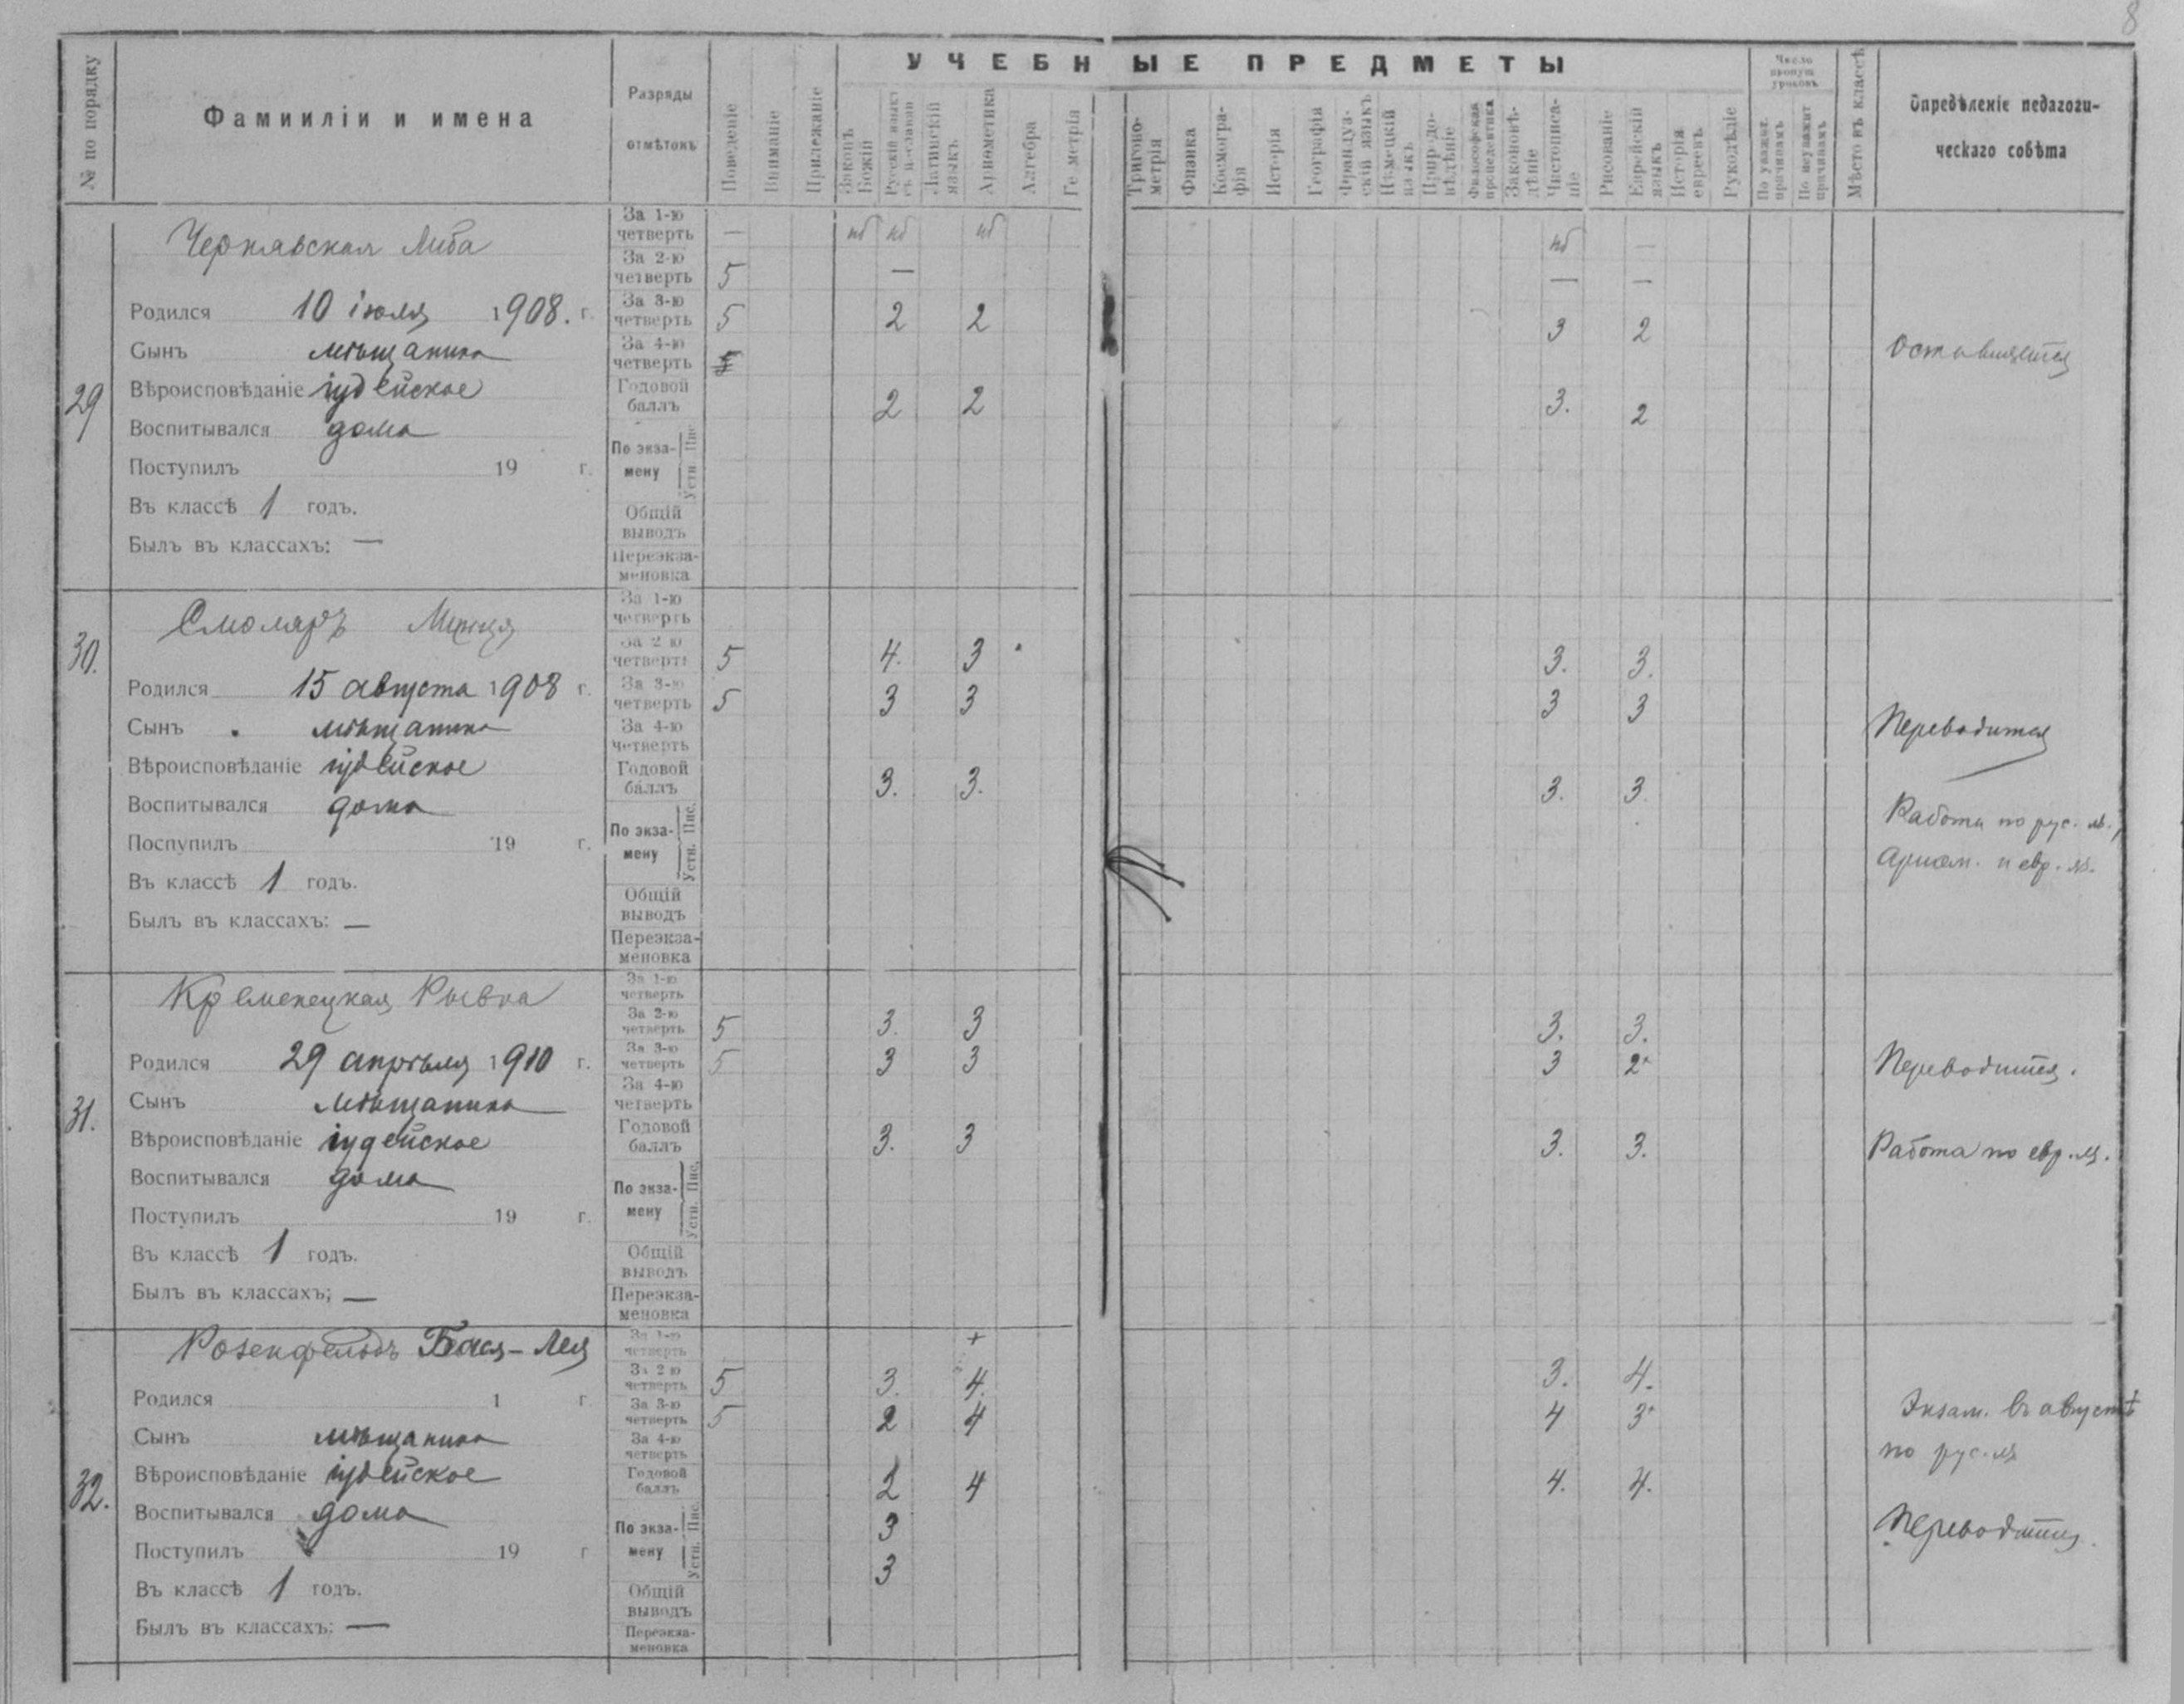 8
УЧЕБНЫЕ ПРЕДМЕТЫ
№ по порядку
Фамииліи и имена
Разряды
отмѣтокъ
Поведеніе
Вниманіе
Прилежаніе
Законъ Божій
Русскій языкъ
Латинскій языкъ
Ариѳметика
Алгебра
Ге метрія
Тригоно-метрія
Физика
Космогра-фія
Исторія
Географія
Француз-скій языкъ
Нѣмецкій языкъ
Природо-вѣдѣніе
Философская пропедевтика
Законовѣ-дѣніе
Чистописа-ніе
Рисованіе
Еврейскій языкъ
Исторія евреевъ
Рукодѣліе
Число пропущ. уроковъ
По уважит. причинамъ
По неуважит причинамъ
Мѣсто въ классѣ
Опредѣленіе педагоги-
ческаго совѣта
29
Чернявская Либа
Родился 10 іюля 1908. г.
Сынъ мѣщанина
Вѣроисповѣданіе іудейское
Воспитывался дома
Поступилъ 19 г.
Въ классѣ 1 годъ.
Былъ въ классахъ: —
За 1-ю четверть — нб нб нб нб —
За 2-ю четверть 5 — — —
За 3-ю четверть 5 2 2 3 2
За 4-ю четверть
Годовой баллъ 2 2 3. 2
По экза-мену Пис. Устн.
Общій выводъ
Переэкза-меновка
Оставляется
30.
Смоляръ
Родился 15 августа 1908 г.
Сынъ мѣщанина
Вѣроисповѣданіе іудейское
Воспитывался дома
Поспупилъ 19 г.
Въ классѣ 1 годъ.
Былъ въ классахъ: —
За 1-ю четверть
За 2 ю четверть 5 4. 3 3. 3.
За 3-ю четверть 5 3 3 3 3
За 4-ю четверть
Годовой баллъ 3. 3. 3. 3.
По экза-мену Пис. Устн.
Общій выводъ
Переэкза-меновка
Переводится
Работа по рус. яз.,
Арием. и евр. яз.
31.
Кременецкая Рывка
Родился 29 апрѣля 1910 г.
Сынъ мѣщанина
Вѣроисповѣданіе іудейское
Воспитывался дома
Поступилъ 19 г.
Въ классѣ 1 годъ.
Былъ въ классахъ; —
За 1-ю четверть
За 2-ю четверть 5 3. 3 3. 3.
За 3-ю четверть 5 3 3 3 2+
За 4-ю четверть
Годовой баллъ 3. 3 3. 3.
По экза-мену Пис. Устн.
Общій выводъ
Переэкза-меновка
Переводится.
Работа по евр. яз.
32.
Розенфельдъ Бася-Лея
Родился 1 г
Сынъ мѣщанина
Вѣроисповѣданіе іудейское
Воспитывался дома
Поступилъ 19 г
Въ классѣ 1 годъ.
Былъ въ классахъ: —
За 1-ю четверть +
За 2 ю четверть 5 3. 4. 3. 4.
За 3-ю четверть 5 2 4 4 3+
За 4-ю четверть
Годовой баллъ 2 4 4. 4.
По экза-мену Пис. 3
Устн. 3
Общій выводъ
Переэкза-меновка
Экзам. въ августѣ
по рус. яз
Переводится.